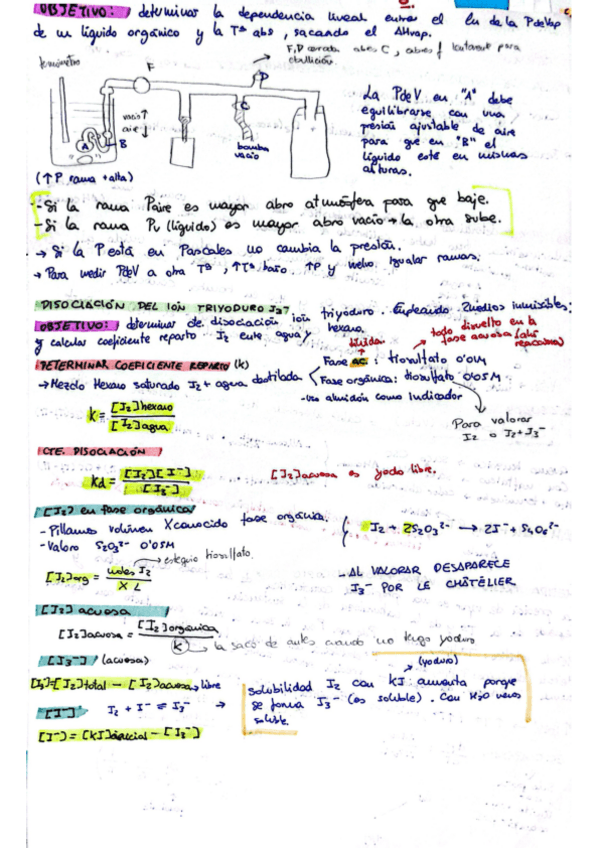 OBJETIVO: determinar la dependencia lineal entre el ln de la PdeVap
de un líquido orgánico y la Tª abs, sacando el ΔHvap.
F,D cerrada abres C, abres f lentament para
ebullición
termómetro
F
D
C
vacio↑
aire↓
A
B
bomba
vacio
(↑P rama +alta)
La PdeV en "A" debe
equilibrarse con una
presión ajustable de aire
para que en "B" el
líquido esté en mismas
alturas.
- Si la rama Paire es mayor abro atmósfera para que baje.
- Si la rama Pv (líquido) es mayor abro vacío → la otra sube.
→ Si la P está en Pascales no cambia la presión.
→ Para medir PdeV a otra Tª, ↑Tª baño. ↑P y vuelvo igualar ramas.
DISOCIACIÓN DEL ION TRIYODURO I3-.
OBJETIVO: determinar de disociación ion triyoduro. Empleando 2 medios inmiscibles:
y calcular coeficiente reparto I2 entre agua y hexano.
todo disuelto en la
fase acuosa (ahí
reacciona)
DETERMINAR COEFICIENTE REPARTO (k)
líquida
Fase ac. : tiosulfato 0'01M
→ Mezclo Hexano saturado I2 + agua destilada
Fase orgánica: tiosulfato 0'05M
- uso almidón como indicador
k = [I2]hexano / [I2]agua
Para valorar
I2 o I2+I3-
CTE. DISOCIACIÓN
kd = [I2][I-] / [I3-]
[I2]acuosa es yodo libre.
[I2] en fase orgánica
- Pillamos volúmen X conocido fase orgánica.
- Valoro S2O3 2- 0'05M
I2 + 2S2O3 2- → 2I- + S4O6 2-
estequio tiosulfato.
[I2]org = moles I2 / X L
- AL VALORAR DESAPARECE
I3- POR LE CHÂTELIER
[I2] acuosa
[I2]acuosa = [I2]orgánica / k
la saco de antes cuando no tengo yoduro
[I3-] (acuosa)
[I3-]=[I2]total - [I2]acuosa libre
(yoduro)
solubilidad I2 con kI aumenta porque
se forma I3- (es soluble). Con H2O menos
soluble.
[I-]
I2 + I- ⇌ I3- →
[I-] = [kI]inicial - [I3-]